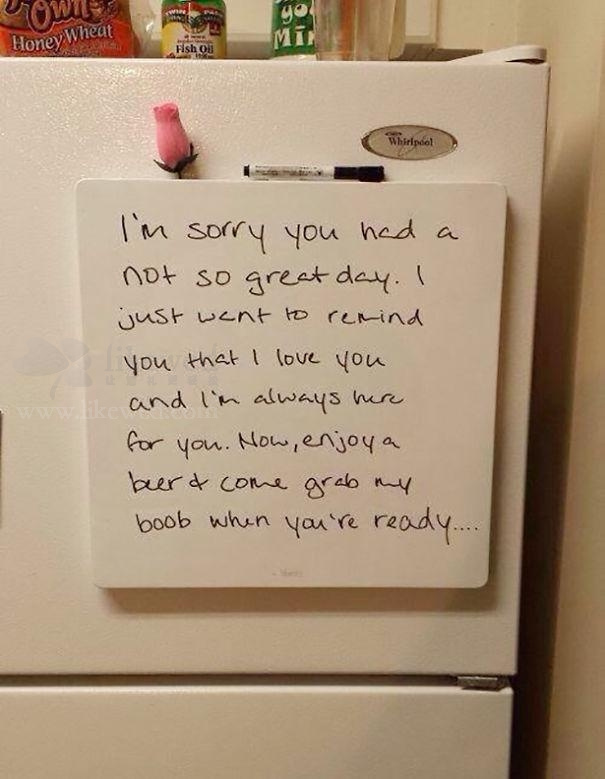 Own
Honey Wheat
TWIN
Fish Oil
Whirlpool
I'm sorry you had a
not so great day. I
just want to remind
you that I love you
and I'm always here
for you. Now, enjoy a
beer & come grab my
boob when you're ready....